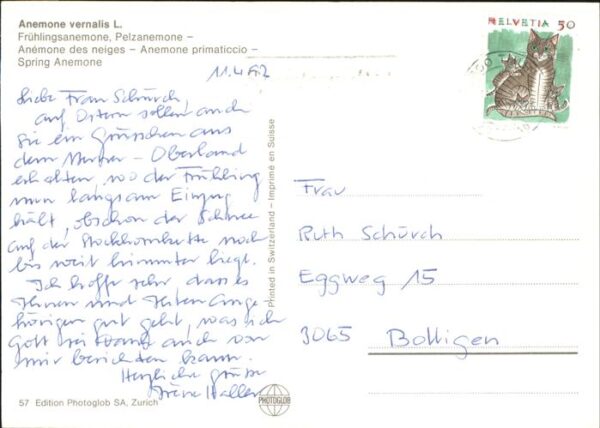 Anemone vernalis L.
Frühlingsanemone, Pelzanemone –
Anémone des neiges – Anemone primaticcio –
Spring Anemone
HELVETIA 50
11.4.
Liebe Frau Schürch,
auf Ostern sollen auch
Sie ein Grüsschen aus
dem Berner-Oberland
erhalten, wo der Frühling
nun langsam Einzug
hält, obschon der Schnee
auf der Stockhornkette noch
bis weit hinunter liegt.
Ich hoffe sehr, dass es
Ihnen und Ihren Ange-
hörigen gut geht, was ich
Gott sei Dank auch von
mir berichten kann.
Herzliche Grüsse
Irène Haller
Printed in Switzerland – Imprimé en Suisse
Frau
Ruth Schürch
Eggweg 15
3065 Bolligen
57 Edition Photoglob SA, Zurich
PHOTOGLOB